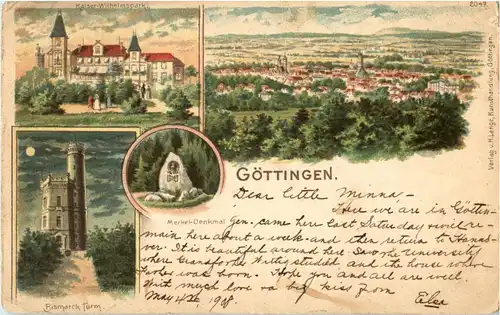 Kaiser-Wilhelmspark.
2047.
Verlag v. H. Lange, Kunsthandlung, Göttingen.
GÖTTINGEN.
Merkel-Denkmal
Bismarck Turm.
Dear little Minna-
Here we are in Göttin-
gen, came here last Saturday will re-
main here about a week and then return to Hano-
ver. It is beautiful around here. Saw the University
where Grandfather Wittig studied and the house where
was born. Hope you and all are well.
With much love & big kiss from
May 4th, 1908. Elsa